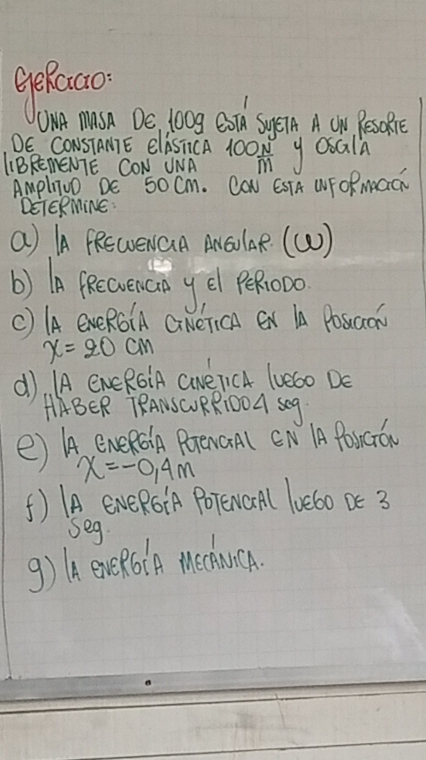 EJERCICIO:
UNA MASA DE 100g ESTÁ SUJETA A UN RESORTE
DE CONSTANTE ELÁSTICA 100 N/m Y OSCILA
LIBREMENTE CON UNA
AMPLITUD DE 50 cm. CON ESTA INFORMACIÓN
DETERMINE:
a) LA FRECUENCIA ANGULAR. (ω)
b) LA FRECUENCIA Y EL PERIODO.
c) LA ENERGÍA CINÉTICA EN LA POSICIÓN
x = 20 cm
d) LA ENERGÍA CINÉTICA LUEGO DE
HABER TRANSCURRIDO 4 seg.
e) LA ENERGÍA POTENCIAL EN LA POSICIÓN
x = -0,4 m
f) LA ENERGÍA POTENCIAL LUEGO DE 3
seg.
g) LA ENERGÍA MECÁNICA.